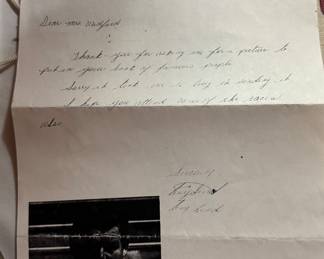 Dear Mrs
Thank you for asking me for a picture to
put in your book of famous people
Sorry it took me so long in sending it
I hope you attend some of the races
also
Sincerely